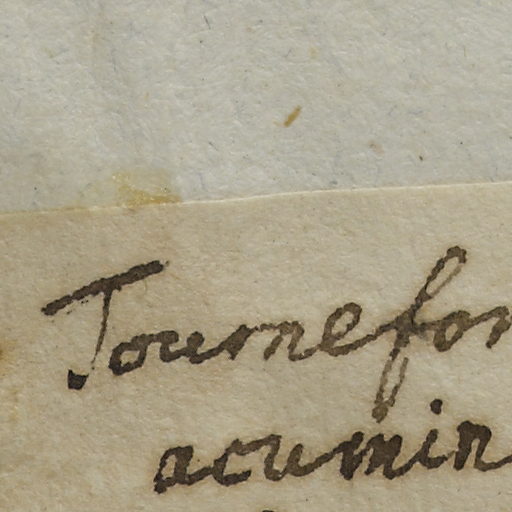 Tournefor
acumin